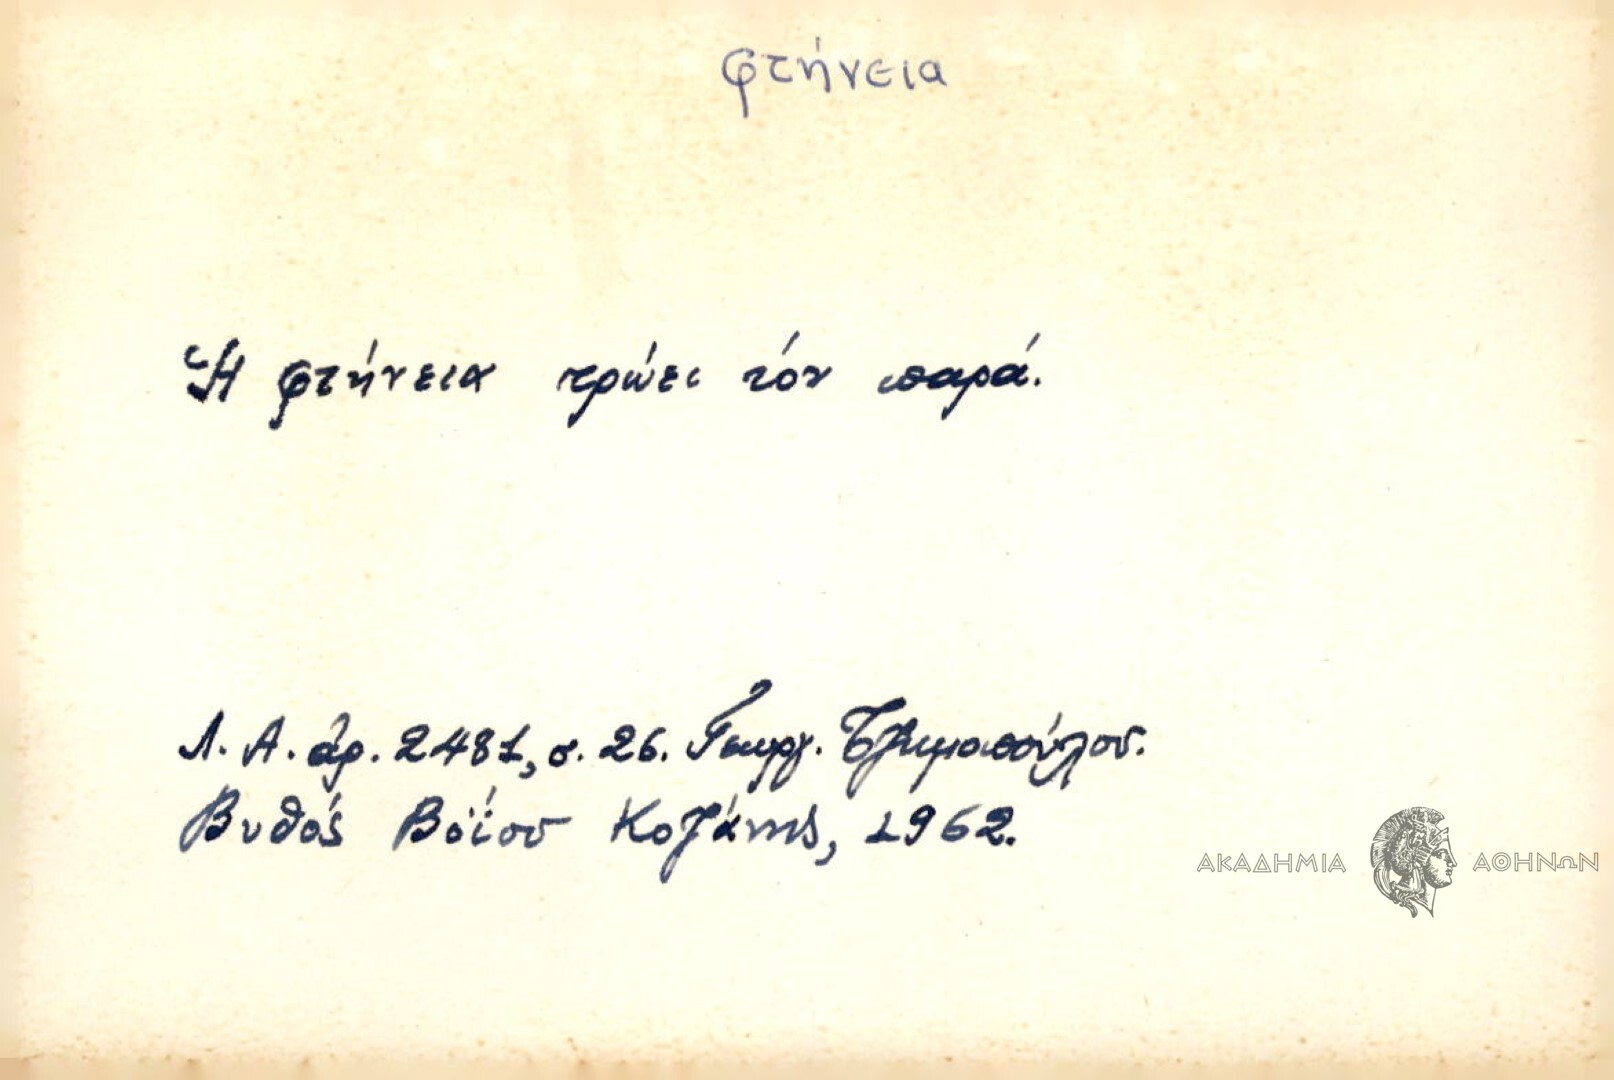 φτήνεια
Ἡ φτήνεια τρώει τόν παρά.
Λ. Α. ἀρ. 2481, σ. 26. Γεωργ.
Βυθός Βοΐου Κοζάνης, 1962.
ΑΚΑΔΗΜΙΑ ΑΘΗΝΩΝ